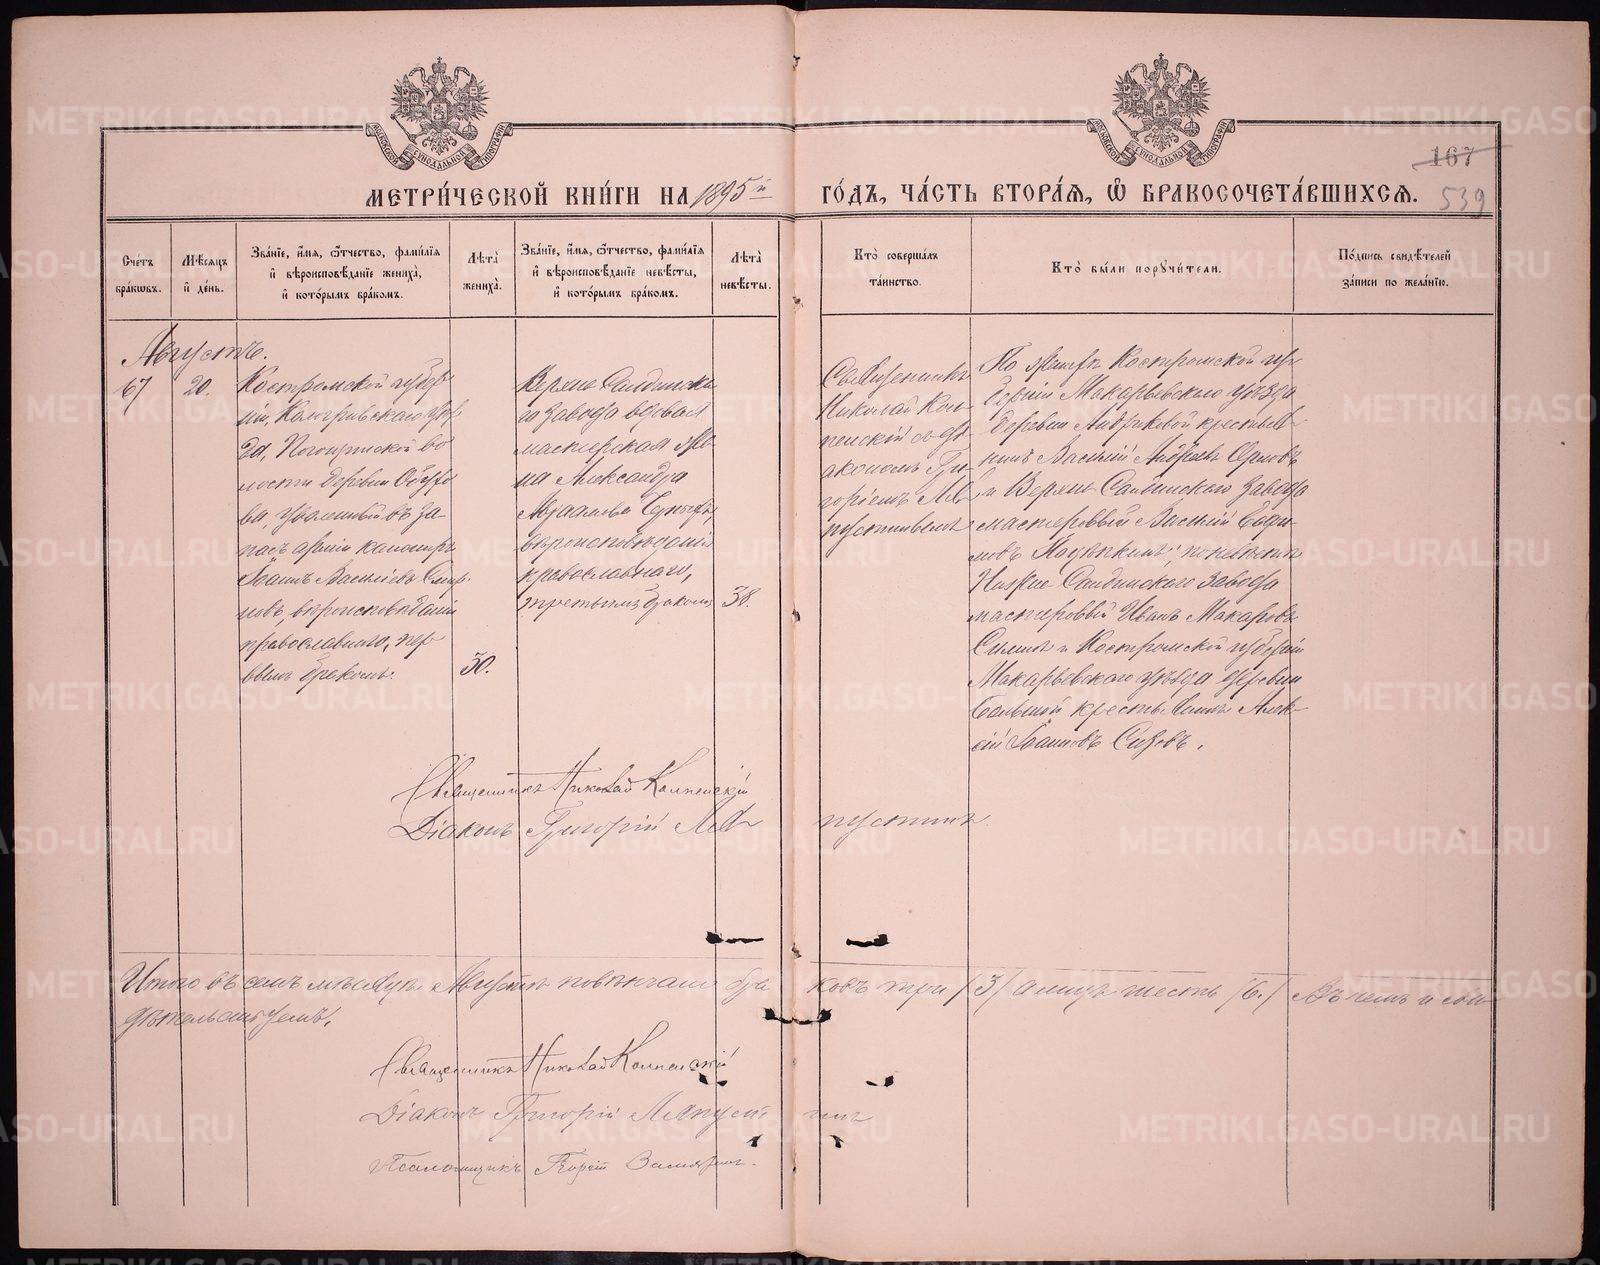 МОСКОВСКОЙ СѴНОДАЛЬНОЙ ТИПОГРАФІИ
МОСКОВСКОЙ СѴНОДАЛЬНОЙ ТИПОГРАФІИ
167
539
МЕТРИ́ЧЕСКОЙ КНИ́ГИ НА 1895й ГО́ДЪ, ЧА́СТЬ ВТОРА́Ѧ, Ѽ БРАКОСОЧЕТА́ВШИХСѦ.
Сче́тъ бра́кѡвъ.
Мѣ́сѧцъ и҆ де́нь.
Зва́нїе, и҆́мѧ, ѻ҆́тчество, фами́лїѧ и҆ вѣроисповѣ́данїе жениха̀, и҆ кото́рымъ бра́комъ.
Лѣ́та̀ жениха̀.
Зва́нїе, и҆́мѧ, ѻ҆́тчество, фами́лїѧ и҆ вѣроисповѣ́данїе невѣ́сты, и҆ кото́рымъ бра́комъ.
Лѣ́та̀ невѣ́сты.
Кто̀ соверша́лъ та́инство.
Кто̀ бы́ли порꙋчи́тели.
По́дпись свидѣ́телей за́писи по жела́нїю.
Августъ.
67
20.
Костромской губер
ніи, Кологривскаго уѣз
да,
лости деревни
ва уволенный въ за
пасъ арміи канониръ
Іоаннъ Васильевъ Смир
новъ, вѣроисповѣданія
православнаго, пер
вымъ бракомъ.
30.
Верхне Салдинска
го завода вдовая
мастерская же
на Александра
вѣроисповѣданія
православнаго,
третьимъ бракомъ
38.
Священникъ
Николай Кол
пенскій съ ді
акономъ Гри
горіемъ Ля
пустинымъ
По женихѣ Костромской гу
берніи Макарьевскаго уѣзда
деревни Андриковой крестья
нинъ Василій Андреевъ Орловъ
и Верхне Салдинскаго завода
мастеровый Василій Ефи
мовъ по невѣстѣ
Нижне Салдинскаго завода
мастеровый Иванъ Макаровъ
и Костромской губерніи
Макарьевскаго уѣзда деревни
крестьянинъ Алек
сій Іоанновъ Сизовъ.
Священникъ Николай Колпенскій
Діаконъ Григорій Ляпустинъ
Итого въ семъ мѣсяцѣ Августѣ повѣнчано браковъ три /3/ а лицъ шесть /6./ Въ чемъ и сви
дѣтельствуемъ.
Священникъ Николай Колпенскій
Діаконъ Григорій Ляпустинъ
Псаломщикъ
METRIKI.GASO-URAL.RU